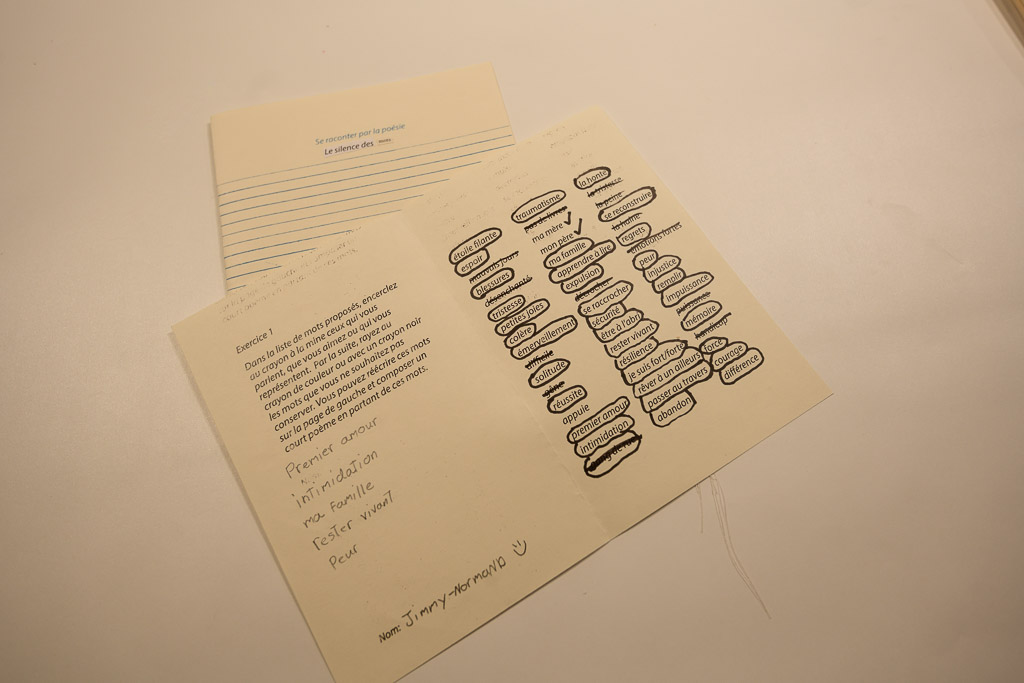 Se raconter par la poésie
Le silence des mots
Exercice 1
Dans la liste de mots proposés, encerclez
au crayon à la mine ceux qui vous
parlent, que vous aimez ou qui vous
représentent. Par la suite, rayez au
crayon de couleur ou avec un crayon noir
les mots que vous ne souhaitez pas
conserver. Vous pouvez réécrire ces mots
sur la page de gauche et composer un
court poème en partant de ces mots.
Premier amour
intimidation
ma famille
rester vivant
Peur
Nom: Jimmy-Normand
étoile filante
espoir
mauvais jours
blessures
désenchanté
tristesse
petites joies
colère
émerveillement
difficile
solitude
gêne
réussite
appuie
premier amour
intimidation
traumatisme
pas de livres
ma mère
mon père
ma famille
apprendre à lire
expulsion
décrocher
se raccrocher
sécurité
être à l'abri
rester vivant
résilience
je suis fort/forte
rêver à un ailleurs
passer au travers
abandon
la honte
la tristesse
la peine
se reconstruire
la haine
regrets
émotions fortes
peur
injustice
remplir
impuissance
puissance
mémoire
handicap
force
courage
différence